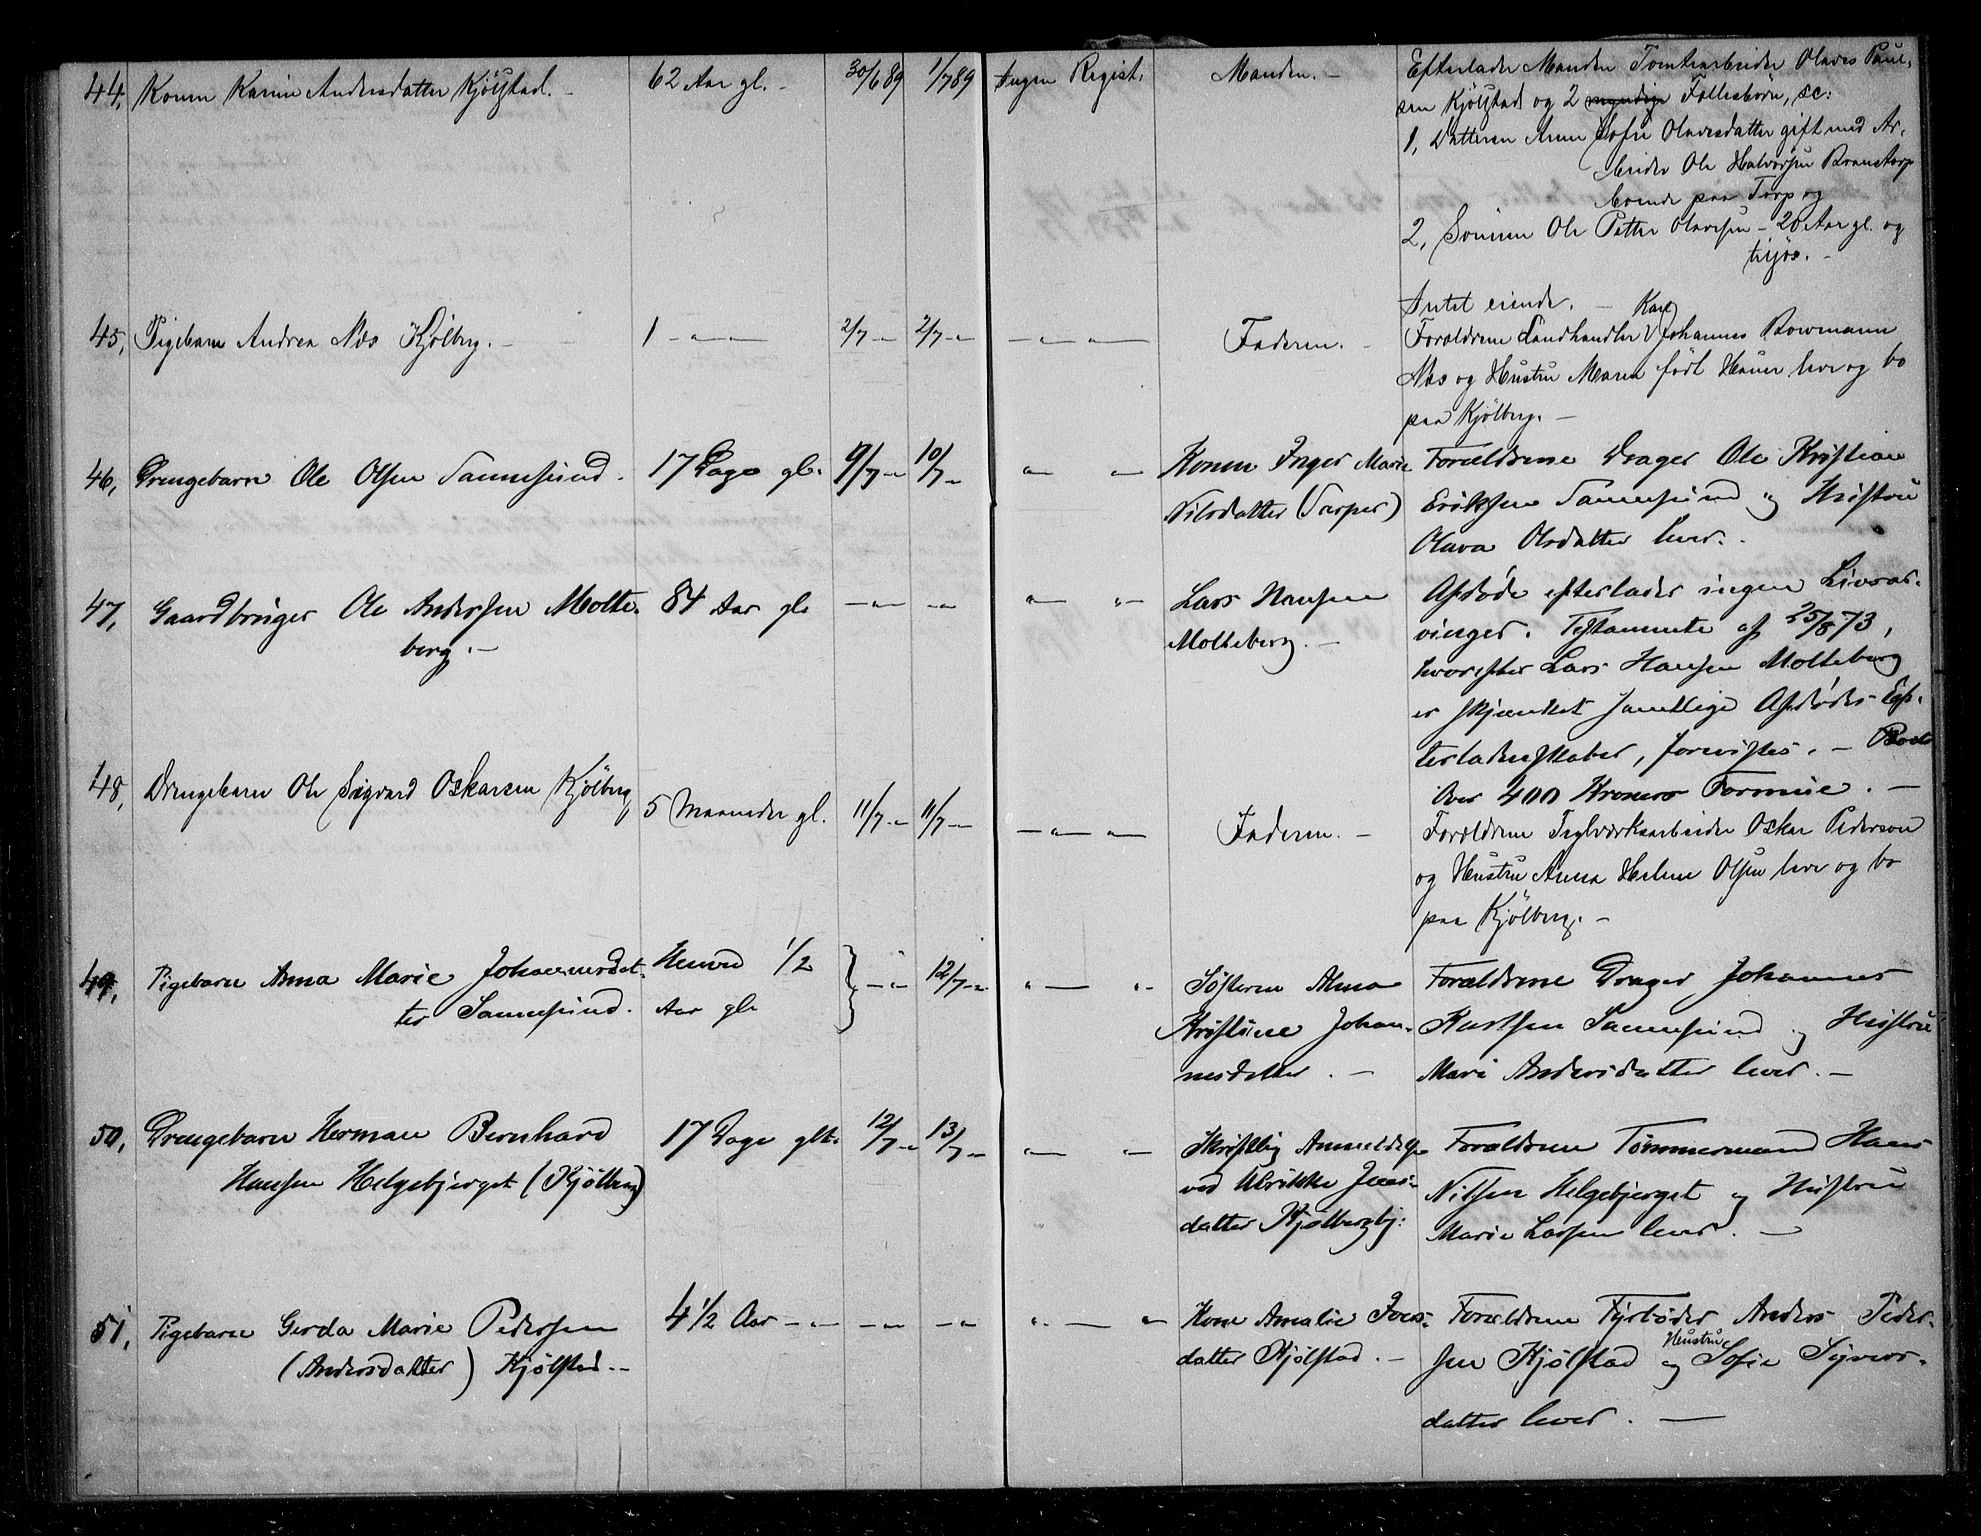 44, Konen Karine Andersdatter Kjölstad. - 62 Aar gl. - 30/6 89 1/7 89 Ingen Regist. Manden. -
Efterlader Manden Tomtearbeider Olaves Paul-
sen Kjölstad og 2 myndige Fællesbörn, sc:
1, Datteren Anne Sofie Olavesdatter gift med Ar-
beider Ole Halvorsen Branstorp
boende paa Torp og
2, Sönnen Ole Petter Olavesen - 20 Aar gl. og
tilsjös. -
Intet eiende. -
45, Pigebarn Andrea Næs Kjölberg. - 1 - " - 2/7 - " 2/7 - " - " - " - Faderen. -
Karl
Forældrene Landhandler Johannes Bowmann
Næs og Hustru Maren født Hauer leve og bo
paa Kjölberg. -
46, Drengebarn Ole Olsen Sannesund. 17 Dage gl. 9/7 - " 10/7 - " " " Konen Inger Marie
Nilsdatter (Sarper)
Forældrene Drager Ole Kristian
Eriksen Sannesund og Hustru
Olava Olsdatter lever. -
47, Gaardbruger Ole Andersen Molte-
berg. -
84 Aar gl. - " - - " - " " - Lars Hansen
Molteberg. -
Afdøde efterlader ingen Livsar-
vinger. Testamente af 25/8 73,
hvorefter Lars Hansen Molteberg
er skjænket samtlige Afdødes Ef-
terladenskaber, forevistes. - Boets
Over 400 Kroners Formue. -
48, Drengebarn Ole Sigvard Oskarsen Kjölberg, 5 Maaneder gl. 11/7 - " 11/7 - " - " - " - Faderen. -
Forældrene Teglværksarbeider Oskar Pederson
og Hustru Anna Helene Olsen leve og bo
paa Kjölberg. -
49, Pigebarn Anna Marie Johannesdat-
ter Sannesund.
Henved 1/2
Aar gl.
- " - 12/7 - " " - " - Søsteren Alma
Kristine Johan-
nesdatter. -
Forældrene Drager Johannes
Karlsen Sannesund og Hustru
Marie Andersdatter lever. -
50, Drengebarn Herman Bernhard
Hansen Helgebjerget (Kjölberg)
17 Dage glt. 12/7 - " 13/7 - " " - " - Skriftlig Anmeldelse
ved Ulrikke Jens-
datter Kjölbergbj:
Forældrene Tømmermand Hans
Nilsen Helgebjerget og Hustru
Marie Larsen lever. -
51, Pigebarn Gerda Marie Pedersen
(Andersdatter) Kjølstad. -
4 1/2 Aar - " - - " - - " " - " - Kone Amalie Jens-
datter Kjølstad. -
Forældrene Fyrbøder Anders Peder-
sen Kjølstad og Hustru Sofie Syvers-
datter lever. -